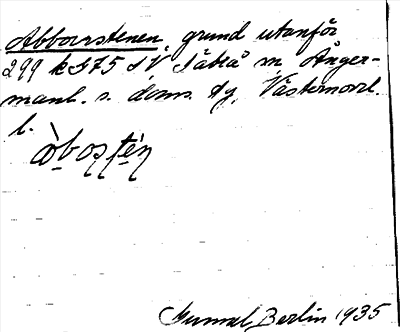 Abborrstenen, grund utanför
299 kf75 SV Säbrå m, Ånger-
manl. s. doms. tg, Västernorrl.
l.
àbosté̩n
Gunnel Berlin 1935